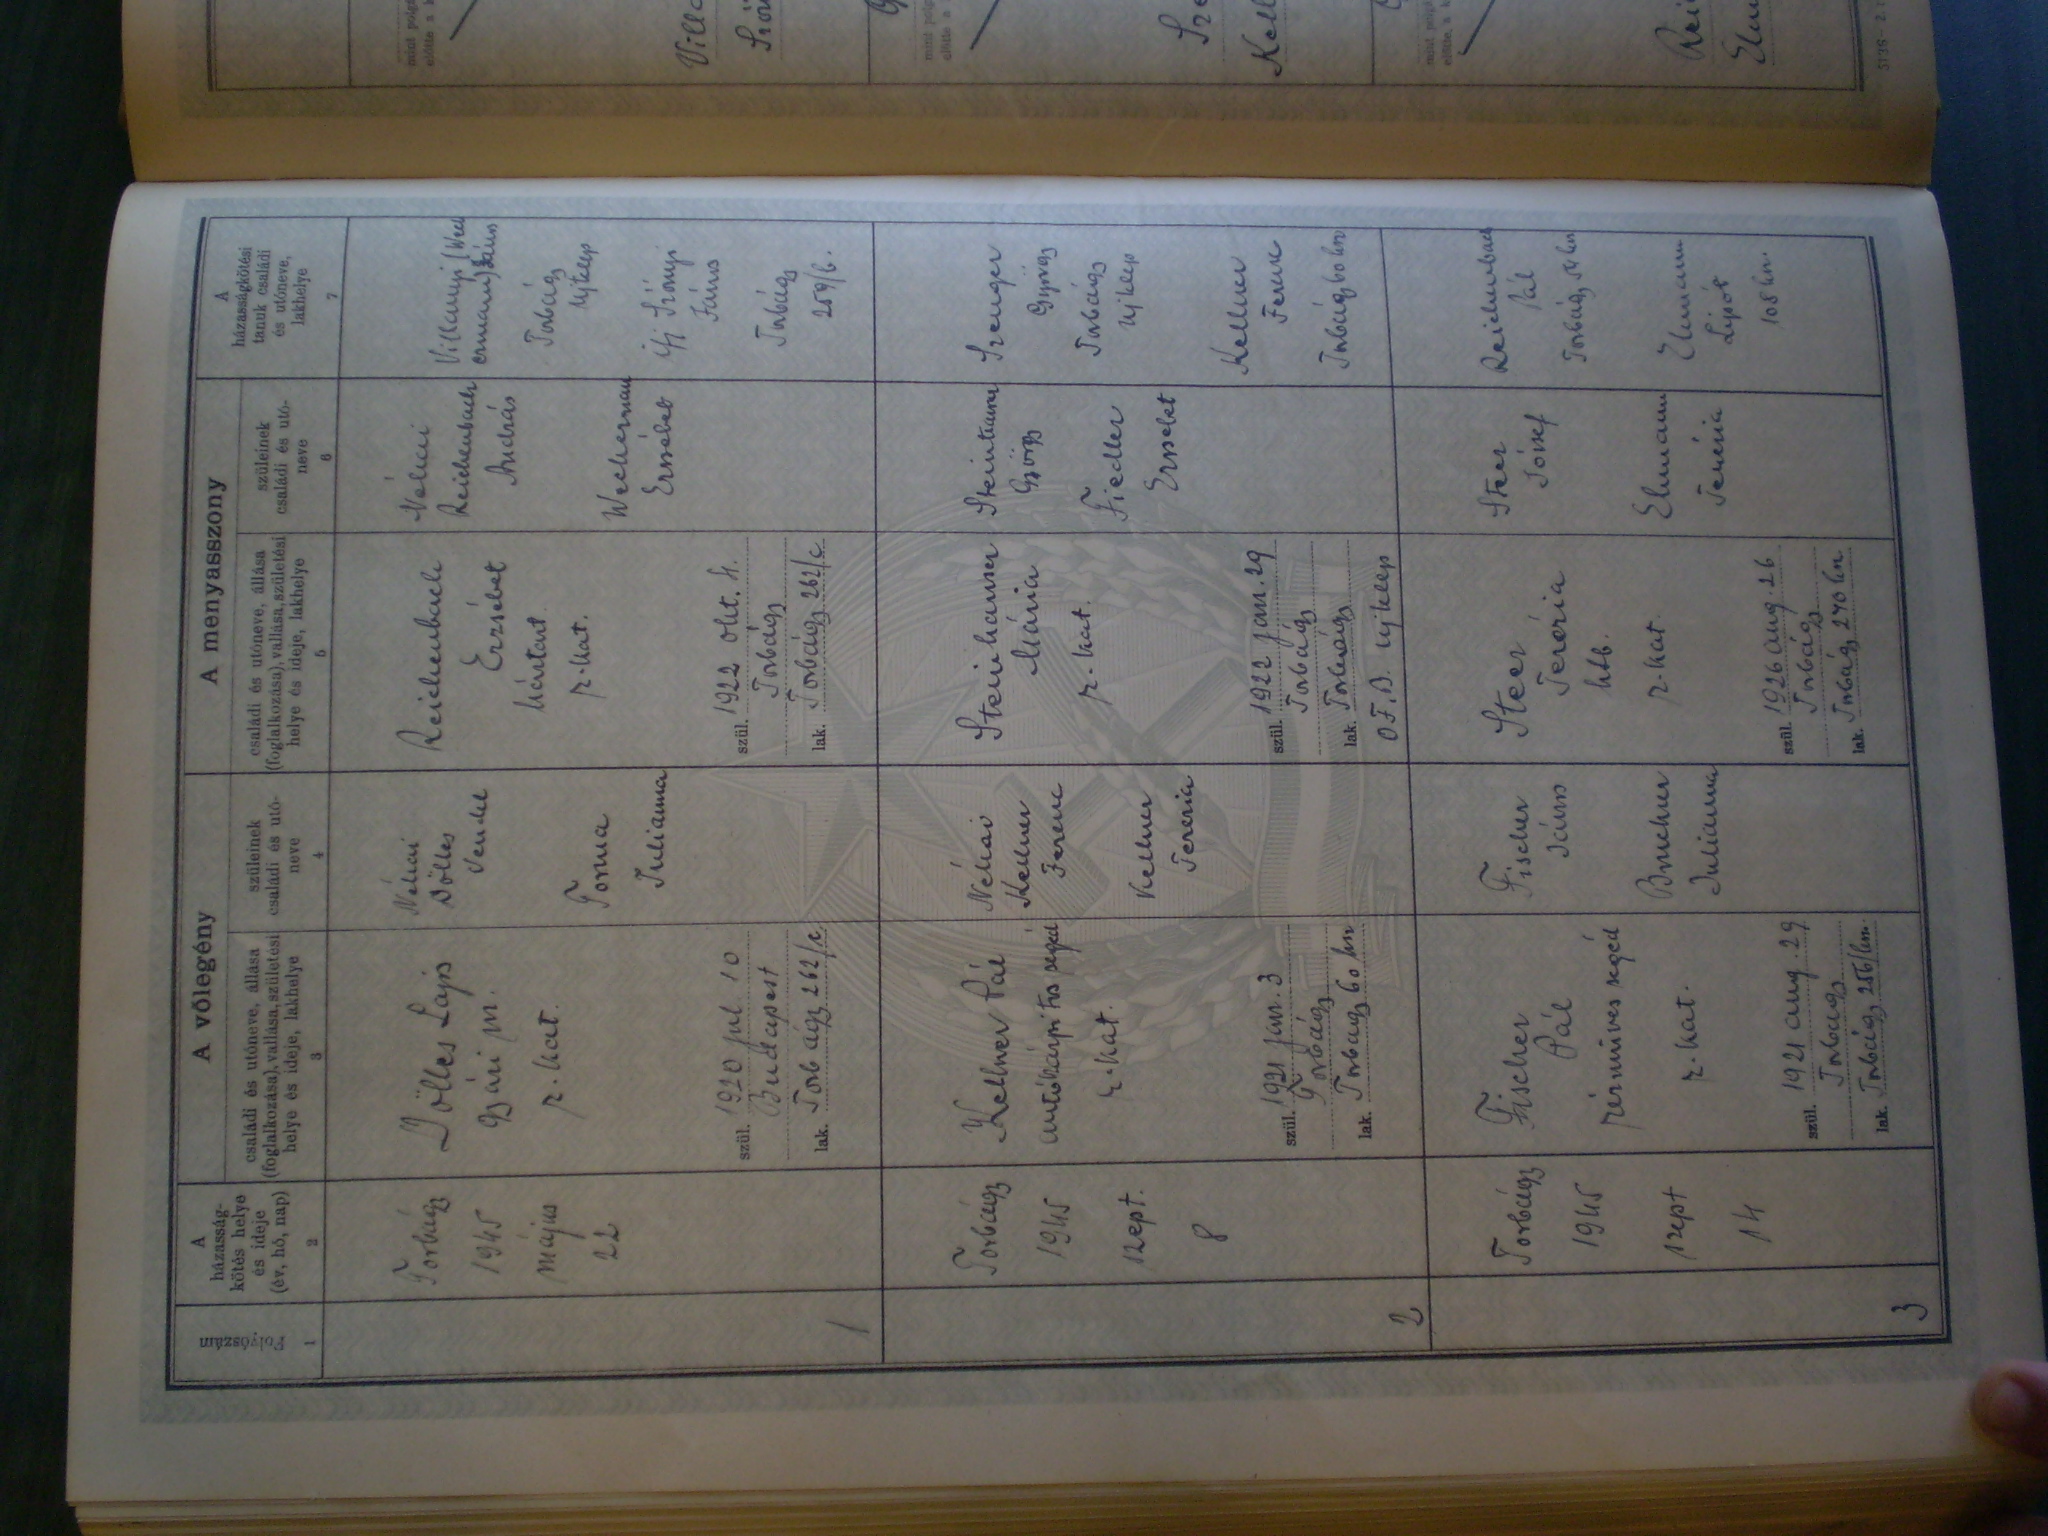 A vőlegény
A menyasszony
Folyószám
1
A
házasság-
kötés helye
és ideje
(év, hó, nap)
2
családi és utóneve, állása
(foglalkozása), vallása, születési
helye és ideje, lakhelye
3
szüleinek
családi és utó-
neve
4
családi és utóneve, állása
(foglalkozása), vallása, születési
helye és ideje, lakhelye
5
szüleinek
családi és utó-
neve
6
A
házasságkötési
tanuk családi
és utóneve,
lakhelye
7
1
Torbágy
1945
május
22
Dölles Lajos
gyári m.
r. kat.
szül. 1920 jul. 10
Budapest
lak. Torbágy 262/c
Néhai
Dölles
Vendel
Torma
Julianna
Reichenbach
Erzsébet
háztart
r. kat.
szül. 1922 okt. 4.
Torbágy
lak. Torbágy 262/c
Néhai
Reichenbach
András
Wechermann
Erzsébet
Villányi (Wech
ermann) János
Torbágy
Ujtelep
ifj Szőnyi
János
Torbágy
259/b.
2
Torbágy
1945
szept.
8
Kellner Pál
autókárpitos segéd
r. kat.
szül. 1921 jan. 3
Torbágy
lak. Torbágy 60 hsz
Néhai
Kellner
Ferenc
Kellner
Terézia
Steinhauser
Mária
r. kat.
szül. 1922 jan. 29
Torbágy
lak. Torbágy
O.F.B. ujtelep
Steinhauser
György
Fiedler
Erzsébet
Szenger
György
Torbágy
Ujtelep
Kellner
Ferenc
Torbágy 60 hsz
3
Torbágy
1945
szept
14
Fischer
Pál
rézműves segéd
r. kat.
szül. 1921 aug. 29
Torbágy
lak. Torbágy, 256/hsz.
Fischer
János
Bruckner
Julianna
Steer
Terézia
htb.
r. kat.
szül. 1926 aug. 26
Torbágy
lak. Torbágy 240 hsz
Steer
József
Elmann
Terézia
Reichenbach
Pál
Torbágy, 54 hsz
Elmann
Lipót
108 hsz.